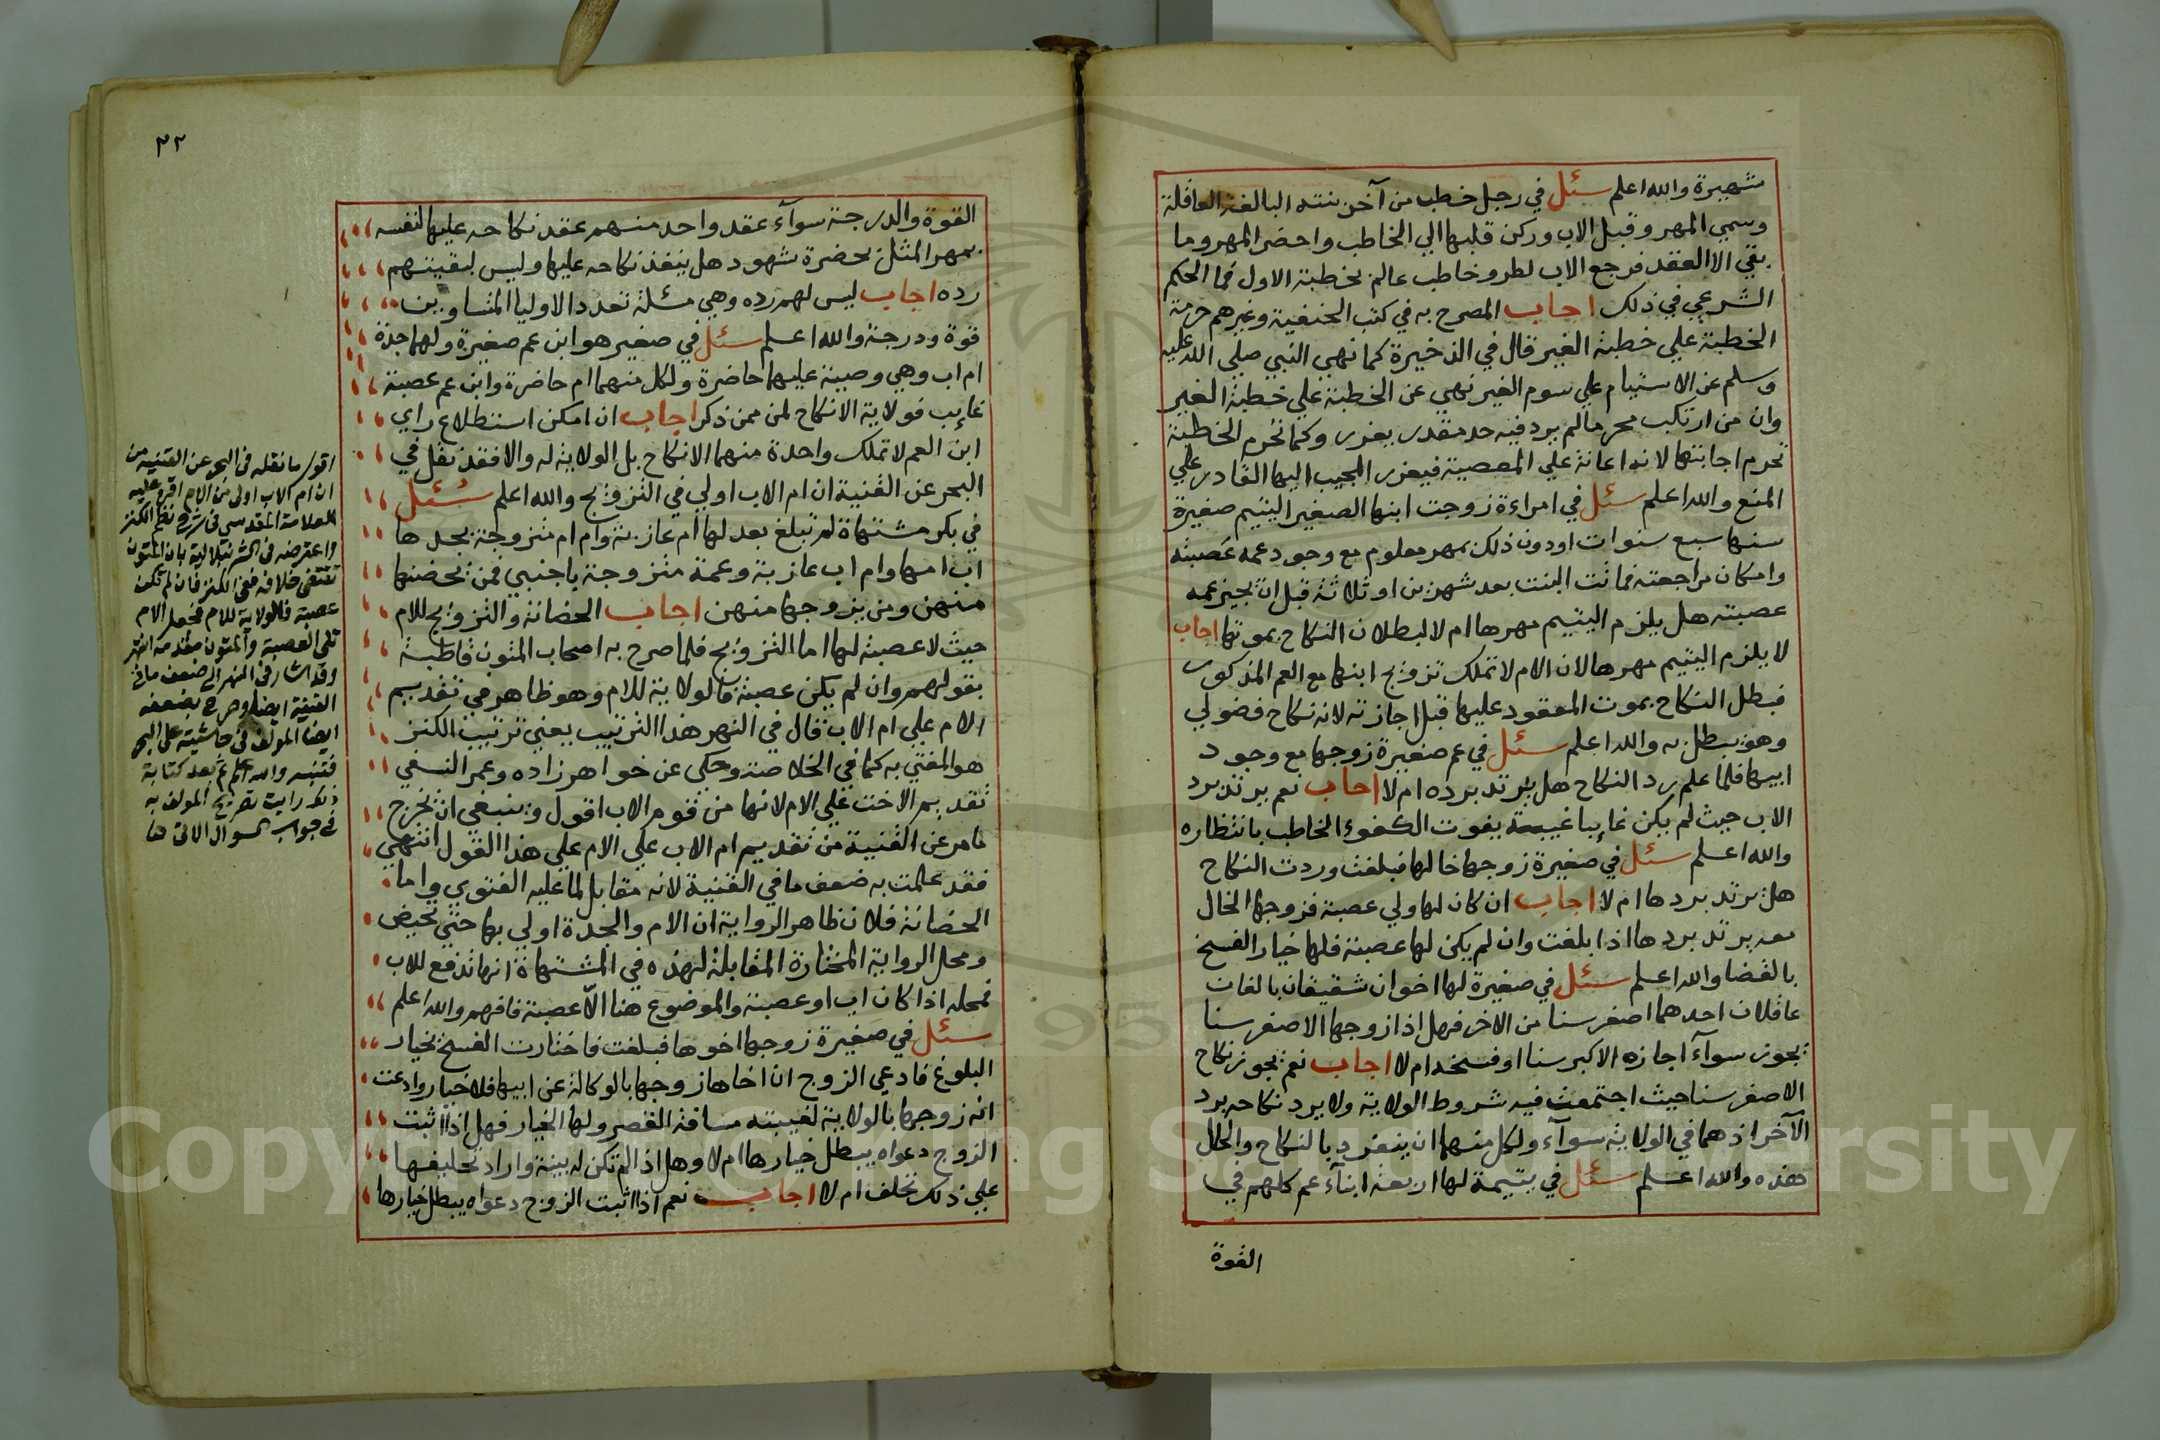 شهيرة والله اعلم سئل في رجل خطب من آخر بنته البالغة العاقلة
وسمي المهر وقبل الاب وركن قلبها الي الخاطب واحضر المهر وما
بقي الا العقد فرجع الاب لطرو خاطب عالم بخطبة الاول فما الحكم
الشرعي في ذلك اجاب المصرح به في كتب الحنفية وغيرهم حرمة
الخطبة علي خطبة الغير قال في الذخيرة كما نهي النبي صلي الله عليه
وسلم عن الاستيام علي سوم الغير نهي عن الخطبة علي خطبة الغير
وان من ارتكب محرما لم يرد فيه حد مقدر يعزر وكما تحرم الخطبة
تحرم اجابتها لانه اعانة علي المعصية فيعزر المجيب اليها القادر علي
المنع والله اعلم سئل في امراءة زوجت ابنها الصغير اليتيم صغيرة
سنها سبع سنوات او دون ذلك بمهر معلوم مع وجود عمه عصبته
وامكان مراجعته فماتت البنت بعد شهرين او ثلاثة قبل ان يجيز عمه
عصبته هل يلزم اليتيم مهرها ام لا لبطلان النكاح بموتها اجاب
لا يلزم اليتيم مهرها لان الام لا تملك تزويج ابنها مع العم المذكور
فبطل النكاح بموت المعقود عليها قبل اجازته لانه نكاح فضولي
وهو يبطل به والله اعلم سئل في عم صغيرة زوجها مع وجود
ابيها فلما علم رد النكاح هل يرتد برده ام لا اجاب نعم يرتد برد
الاب حيث لم يكن غايبا غيبة يفوت الكفوء الخاطب بانتظاره
والله اعلم سئل في صغيرة زوجها خالها فبلغت وردت النكاح
هل يرتد بردها ام لا اجاب ان كان لها ولي عصبة فزوجها الخال
بعد يرتد بردها اذا بلغت وان لم يكن لها عصبة فلها خيار الفسخ
بالقضا والله اعلم سئل في صغيرة لها اخوان شقيقان بالغان
عاقلان احدهما اصغر سنا من الاخر فهل اذا زوجها الاصغر سنا
يجوز سوآء اجازه الاكبر سنا او فسخه ام لا اجاب نعم يجوز نكاح
الاصغر سنا حيث اجتمعت فيه شروط الولاية ولا يرد نكاحه برد
الآخر اذ هما في الولاية سوآء ولكل منهما ان ينفرد بالنكاح والحال
هذه والله اعلم سئل في يتيمة لها اربعة ابنآء عم كلهم في
القوة
٢٢
القوة والدرجة سوآء عقد واحد منهم عقد نكاحه عليها لنفسه
بمهر المثل بحضرة شهود هل ينفذ نكاحه عليها وليس لبقيتهم
رده اجاب ليس لهم رده وهي مسئلة تعدد الاوليا المتساوين
قوة ودرجة والله اعلم سئل في صغير هو ابن عم صغيرة ولهما جدة
ام اب وهي وصية عليهما حاضرة ولكل منهما ام حاضرة وابن عم عصبة
غايب فولاية الانكاح لمن ممن ذكر اجاب ان امكن استطلاع راي
ابن العم لا تملك واحدة منهما الانكاح بل الولاية له والا فقد نقل في
البحر عن القنية ان ام الاب اولي في التزويج والله اعلم سئل
في بكر مشتهاة لم تبلغ بعد لها ام عازبة وام ام متزوجة بجدها
اب امها وام اب عازبة وعمة متزوجة باجنبي فمن يحضنها
منهن ومن يزوجها منهن اجاب الحضانة والتزويج للام
حيث لا عصبة لها اما التزويج فلما صرح به اصحاب المتون قاطبة
بقولهم وان لم يكن عصبة فالولاية للام وهو ظاهر في تقديم
الام علي ام الاب قال في النهر هذا الترتيب يعني ترتيب الكنز
هو المفتي به كما في الخلاصة وحكي عن خواهر زاده وعمر النسفي
تقديم الاخت علي الام لانها من قوم الاب اقول وينبغي ان يخرج
ما مر عن القنية من تقديم ام الاب علي الام علي هذا القول انتهي
فقد علمت به ضعف ما في القنية لانه مقابل لما عليه الفتوي واما
الحضانة فلان ظاهر الرواية ان الام والجدة اولي بها حتي تحيض
ومحل الرواية المختارة المقابلة لهذه في المشتهاة انها تدفع للاب
فمحله اذا كان اب او عصبة والموضوع هنا الا عصبة فافهم والله اعلم
سئل في صغيرة زوجها اخوها فبلغت فاختارت الفسخ بخيار
البلوغ فادعي الزوج ان اخاها زوجها بالوكالة عن ابيها فلا خيار وادعت
انه زوجها بالولاية لغيبته مسافة القصر ولها الخيار فهل اذا اثبت
الزوج دعواه يبطل خيارها ام لا وهل اذا لم تكن له بينة واراد تحليفها
علي ذلك تحلف ام لا اجاب نعم اذا اثبت الزوج دعواه يبطل خيارها
اقول ما نقله في البحر عن القنية من
ان ام الاب اولى من الام اقره عليه
العلامة المقدسي في شرح نظم الكنز
واعترضه في الشرنبلالية بان المتون
تقتضي خلافه ففي الكنز فان لم تكن
عصبة فالولاية للام فجعل الام
تلي العصبة والمتون مقدمة انتهى
وقد اشار في النهر الى ضعف ما في
القنية ايضا وصرح بضعفه
ايضا المؤلف في حاشيته على البحر
فتنبه والله اعلم ثم بعد كتابة
ذلك رايت تصريح المؤلف به
في جواب السوال الاتي هنا
Copyright © King Saud University